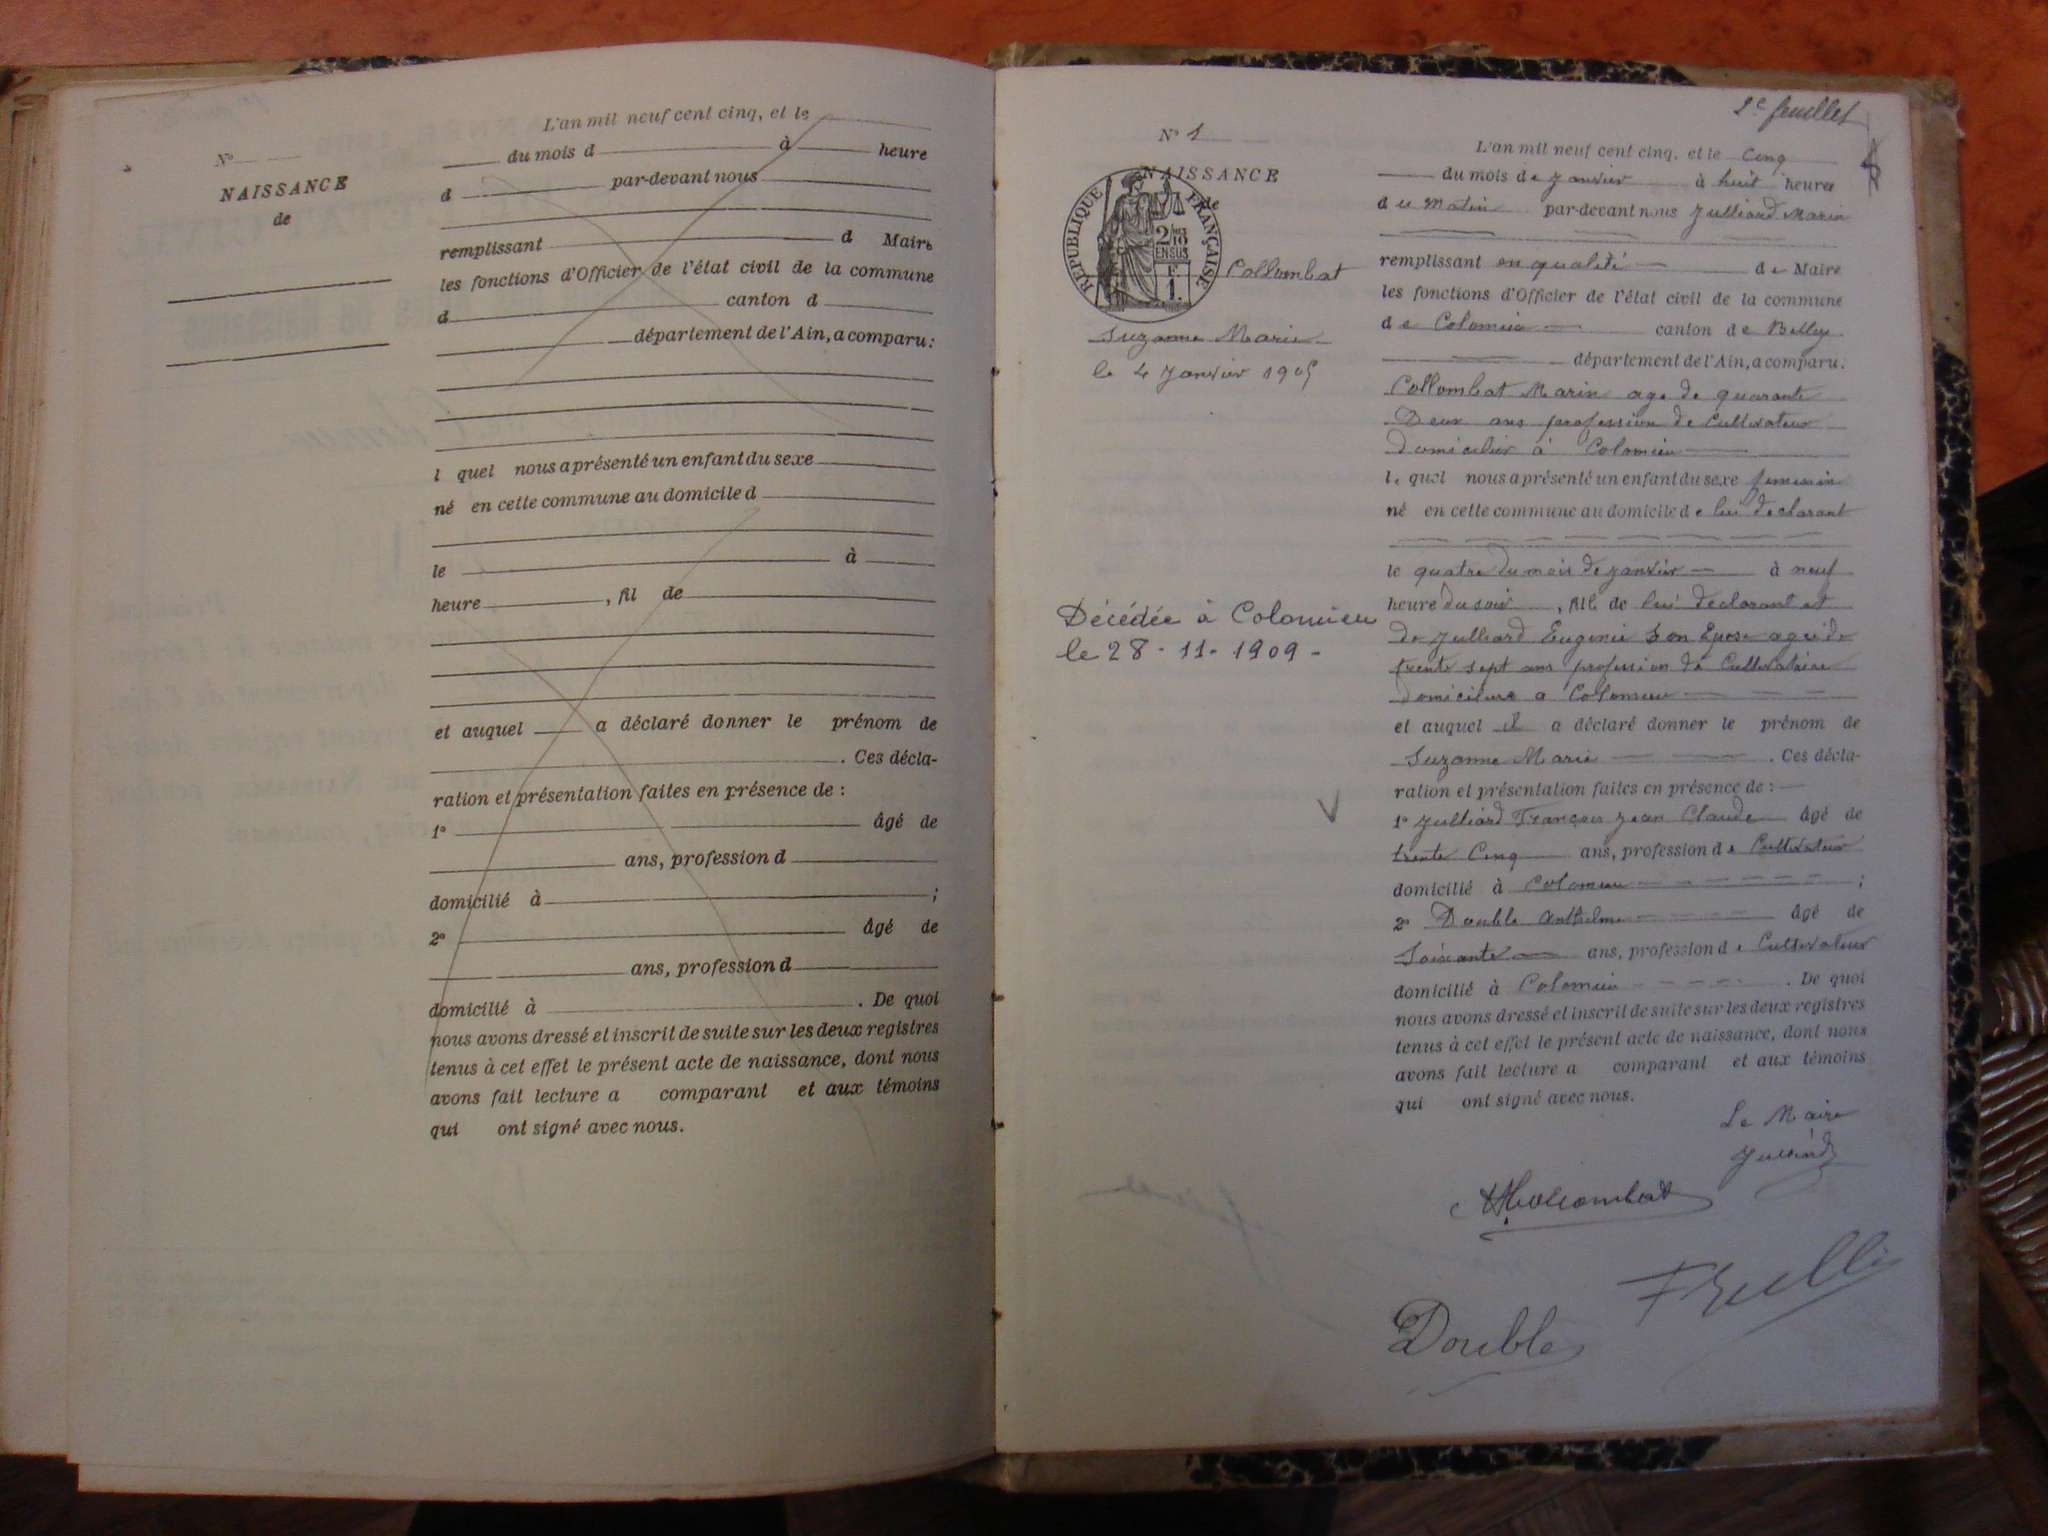 N°
NAISSANCE
de
L'an mil neuf cent cinq, et le
du mois d à heure
d par-devant nous
remplissant d Maire
les fonctions d'Officier de l'état civil de la commune
d canton d
département de l'Ain, a comparu:
l quel nous a présenté un enfant du sexe
né en cette commune au domicile d
le à
heure , fil de
et auquel a déclaré donner le prénom de
. Ces décla-
ration et présentation faites en présence de :
1° âgé de
ans, profession d
domicilié à ;
2° âgé de
ans, profession d
domicilié à . De quoi
nous avons dressé et inscrit de suite sur les deux registres
tenus à cet effet le présent acte de naissance, dont nous
avons fait lecture a comparant et aux témoins
qui ont signé avec nous.
2e feuillet
N° 1
NAISSANCE
de
REPUBLIQUE FRANÇAISE
2/10 EN SUS
F.
1.
Collombat
Suzanne Marie
le 4 Janvier 1905
Décédée à Colomieu
le 28-11-1909-
L'an mil neuf cent cinq, et le Cinq
du mois de Janvier à huit heures
du Matin par-devant nous Julliard Marin
remplissant en qualité de Maire
les fonctions d'Officier de l'état civil de la commune
de Colomieu canton de Belley
département de l'Ain, a comparu:
Collombat Marin age de quarante
Deux ans profession de Cultivateur
domicilier à Colomieu
le quel nous a présenté un enfant du sexe feminin
né en cette commune au domicile de lui declarant
le quatre du mois de Janvier à neuf
heure du soir , fille de lui declarant et
de Julliard Eugenie Son Epose ageé de
trente sept ans profession de Cultivatrice
domiciliere a Colomieu
et auquel il a déclaré donner le prénom de
Suzanne Marie . Ces décla-
ration et présentation faites en présence de :
1° Julliard François Jean Claude âgé de
trente Cinq ans, profession de Cultivateur
domicilié à Colomieu ;
2° Double Anthelme âgé de
Soixante ans, profession de Cultivateur
domicilié à Colomieu . De quoi
nous avons dressé et inscrit de suite sur les deux registres
tenus à cet effet le présent acte de naissance, dont nous
avons fait lecture a comparant et aux témoins
qui ont signé avec nous.
Le Maire
Julliard
Collombat
Double